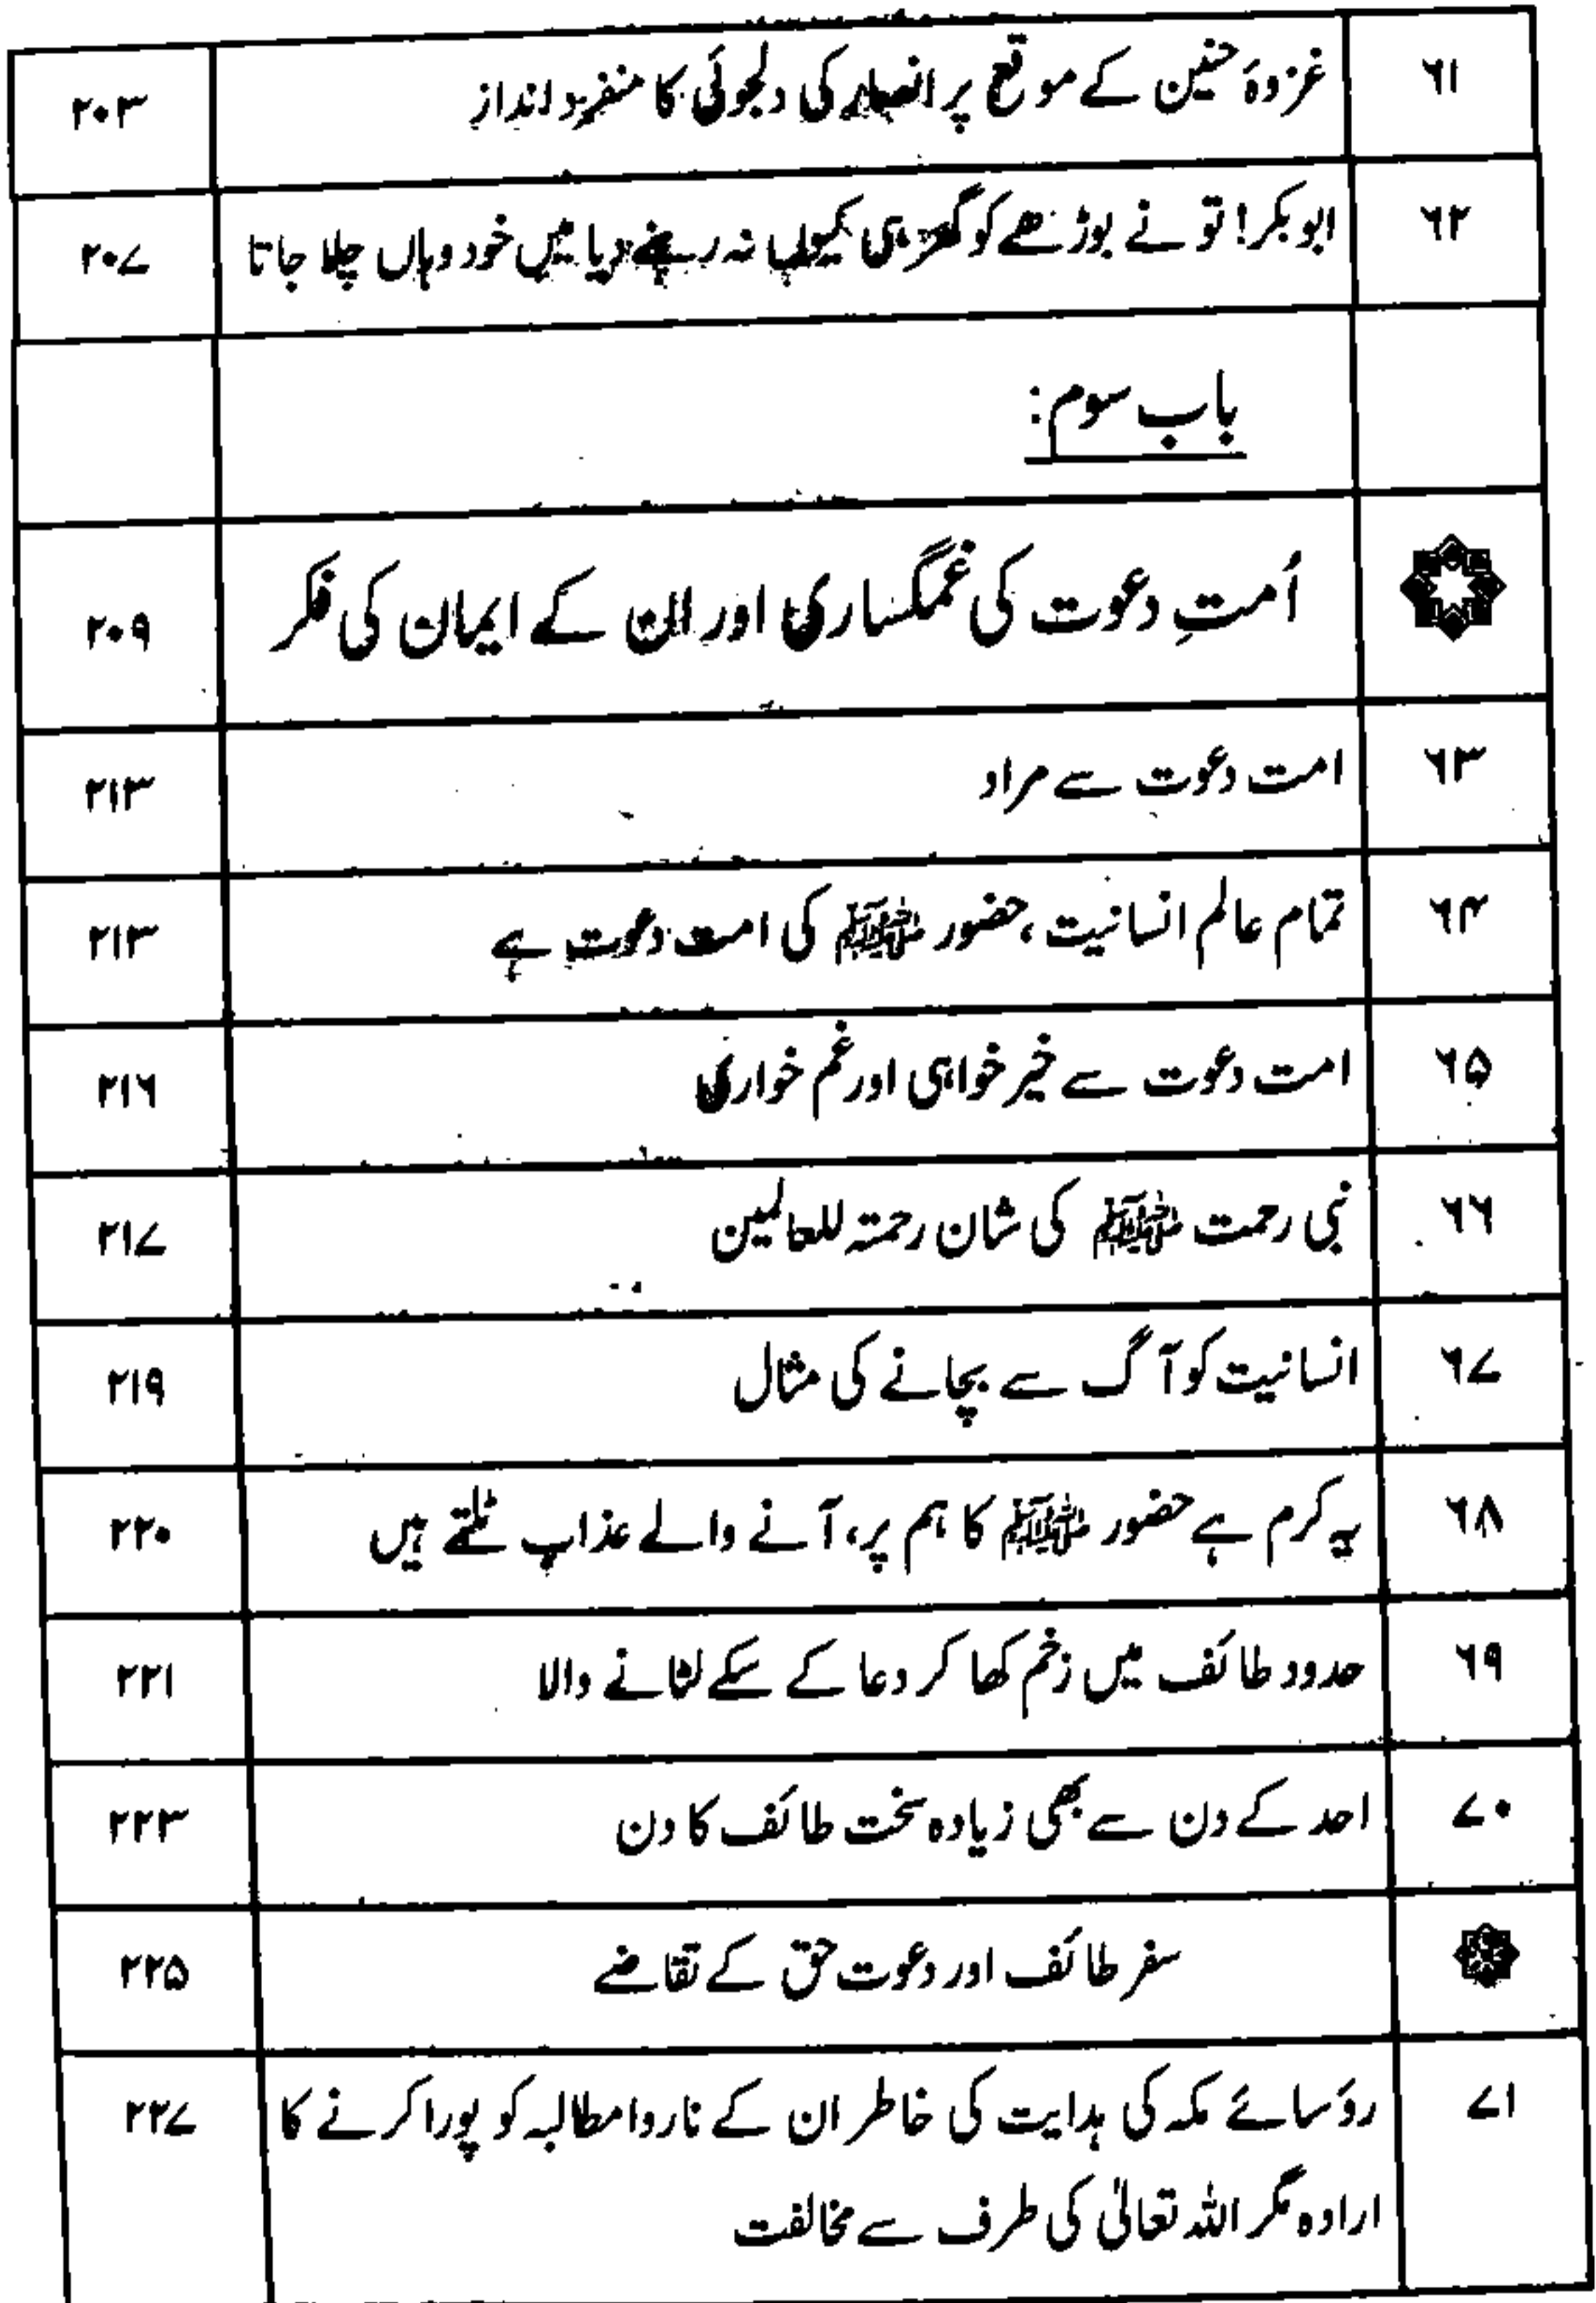 ۶۱ غزوۂ حنین کے موقع پر انصار کی دلجوئی کا منفرد انداز ۲۰۳
۶۲ ابوبکر! تو نے بوڑھے کو گھر ہی کیوں نہ رہنے دیا میں خود وہاں چلا جاتا ۲۰۷
باب سوم:
اُمتِ دعوت کی غمگساری اور ان کے ایمان کی فکر ۲۰۹
۶۳ امت دعوت سے مراد ۲۱۳
۶۴ تمام عالم انسانیت، حضور ﷺ کی امت دعوت ہے ۲۱۳
۶۵ امت دعوت سے خیر خواہی اور غم خواری ۲۱۶
۶۶ نبی رحمت ﷺ کی شان رحمتہ للعالمین ۲۱۷
۶۷ انسانیت کو آگ سے بچانے کی مثال ۲۱۹
۶۸ یہ کرم ہے حضور ﷺ کا ہم پر، آنے والے عذاب ٹلتے ہیں ۲۲۰
۶۹ حدود طائف میں زخم کھا کر دعا کے سکے لٹانے والا ۲۲۱
۷۰ احد کے دن سے بھی زیادہ سخت طائف کا دن ۲۲۳
سفر طائف اور دعوت حق کے تقاضے ۲۲۵
۷۱ رؤسائے مکہ کی ہدایت کی خاطر ان کے ناروا مطالبہ کو پورا کرنے کا ۲۲۷
ارادہ مگر اللہ تعالیٰ کی طرف سے مخالفت